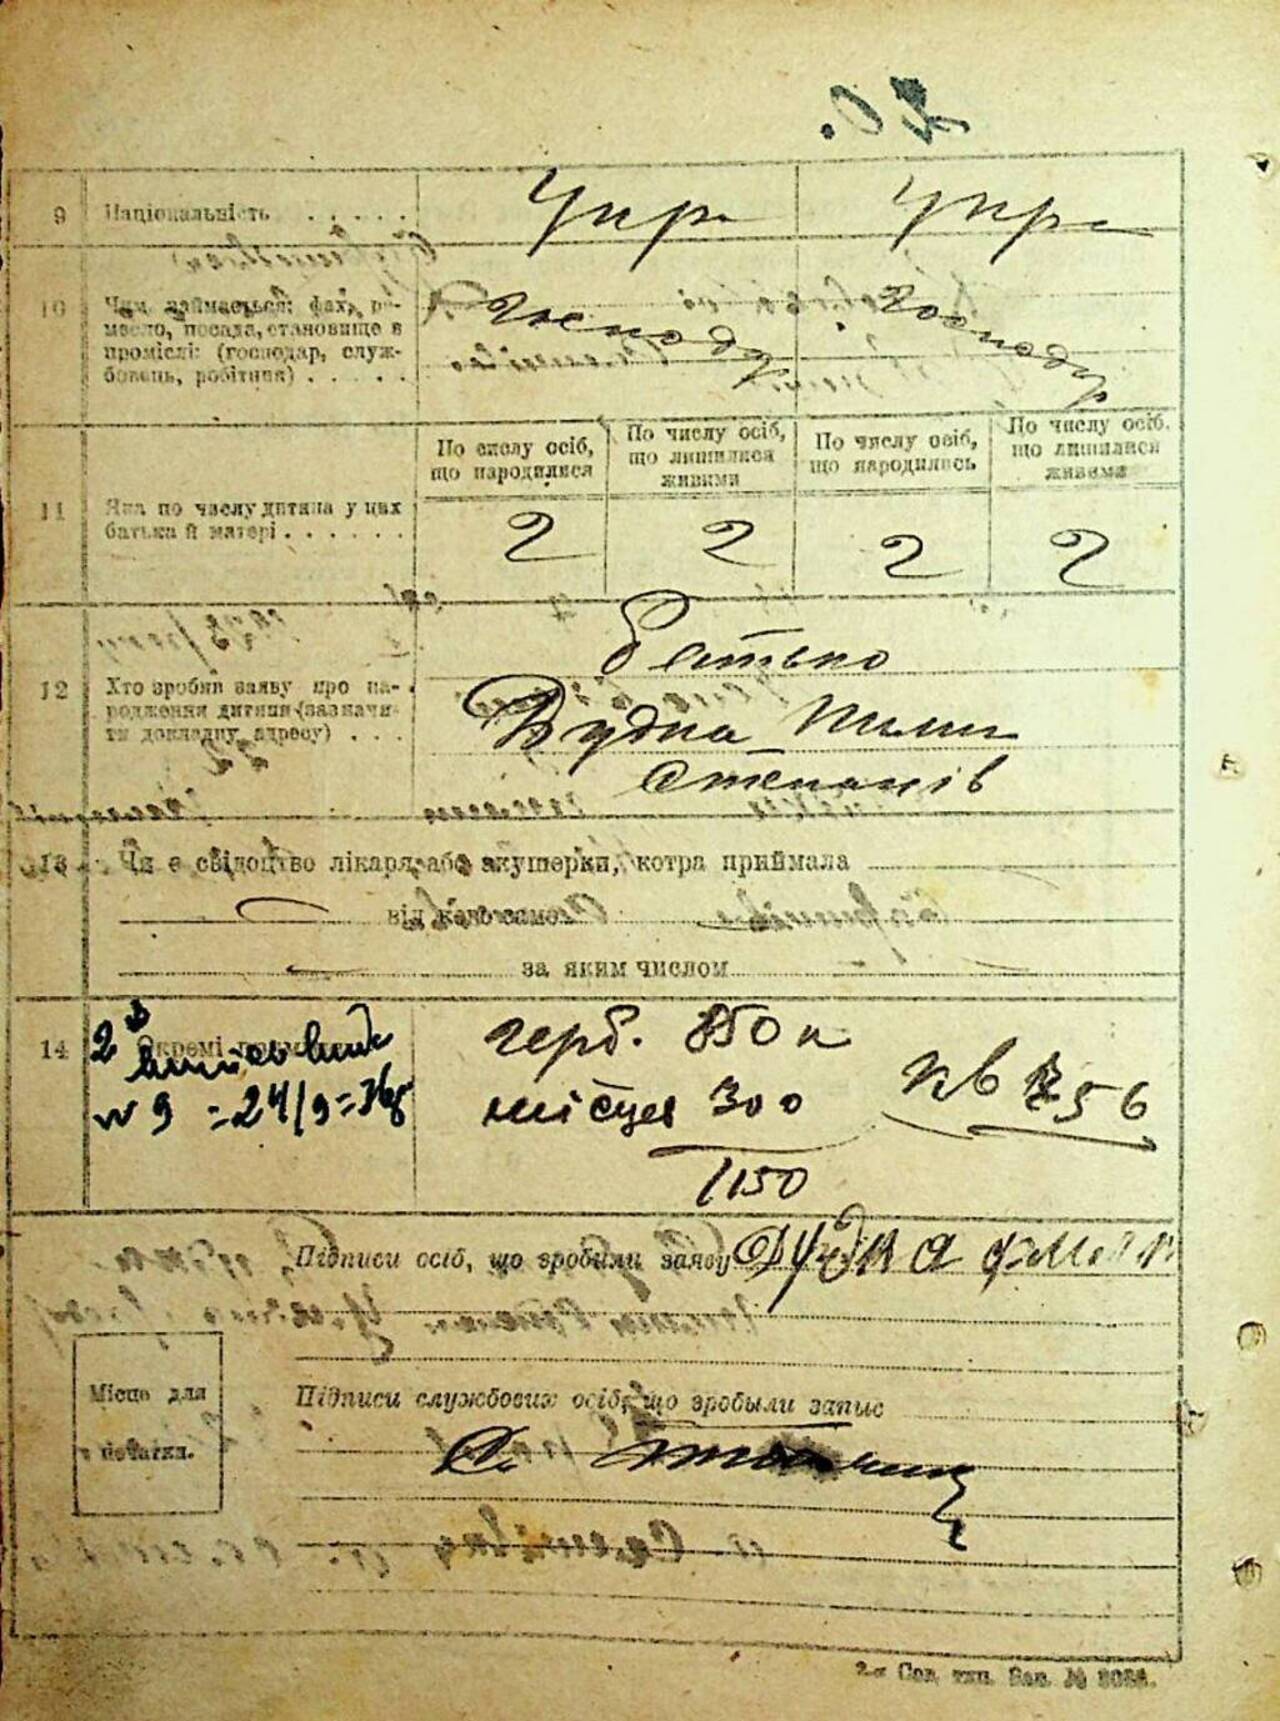 9 Національність . . . . . Укр. Укр.
10 Чим займається: фах, ре-
месло, посада, становище в
промислі: (господар, служ-
бовець, робітник) . . . . .
Господар Господар
По числу осіб, що народилися
По числу осіб, що лишилися живими
По числу осіб, що народились
По числу осіб, що лишилися живими
11 Яка по числу дитина у цих
батька й матері . . . . . .
2 2 2 2
Батько
12 Хто зробив заяву про на-
родження дитини (зазначи-
ти докладну адресу) . . .
Дудка
Степанів
13 Чи є свідоцтво лікаря або акушерки, котра приймала
від кого саме
за яким числом
14 Окремі
№ 9 = 24/9 =
герб. 850 к
місцев 300
1150
кв 256
Підписи осіб, що зробили заяву Дудка
Підписи службових осіб, що зробыли запис
Місце для
печатки.
2-а Сов. тип. Зак. №